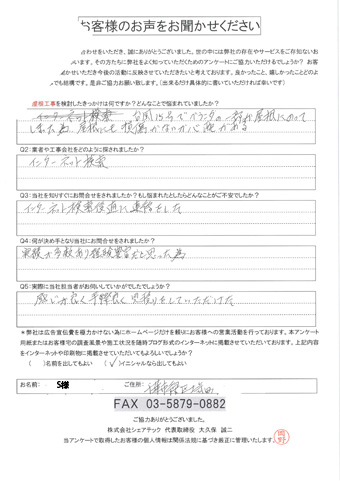 お客様のお声をお聞かせください
合わせをいただき、誠にありがとうございました。世の中には弊社の存在やサービスをご存知ないお
います。その方たちに弊社をよく知っていただくためのアンケートにご協力いただけるでしょうか？ お客
かせいただき今後の活動に反映させていただきたいと考えております。良かったこと、嬉しかったことどのよ
でも結構です。是非ご協力お願い致します。（出来るだけ具体的に書いていただければ幸いです）
屋根工事を検討したきっかけは何ですか？どんなことで悩まれていましたか？
インターネット検索 台風15号でベランダの一部が屋根にのって
しまった為 屋根にも損傷がないか心配がある
Q2：業者や工事会社をどのように探されましたか？
インターネット検索
Q3：当社を知りすぐにお問合せをされましたか？もし悩まれたとしたらどんなことがご不安でしたか？
インターネット検索後直に連絡をした
Q4：何が決め手となり当社にお問合せをされましたか？
実績が多数あり経験豊富だと思った為
Q5：実際に当社担当者がお伺いしていかがでしたでしょうか？
感じが良く手際良く見積りをしていただけた
＊弊社は広告宣伝費を極力かけない為にホームページだけを頼りにお客様への営業活動を行っております。本アンケート
用紙またはお客様宅の調査風景や施工状況を随時ブログ形式のインターネットに掲載させていただいております。上記内容
をインターネットや印刷物に掲載させていただいてもよろしいでしょうか？
（ ）名前を出してもよい （✓）イニシャルなら出してもよい
お名前： S様 ご住所：
FAX 03-5879-0882
ご協力ありがとうございました。
株式会社シェアテック 代表取締役 大久保 誠二
当アンケートで取得したお客様の個人情報は関係法規に基づき厳正に管理いたします。